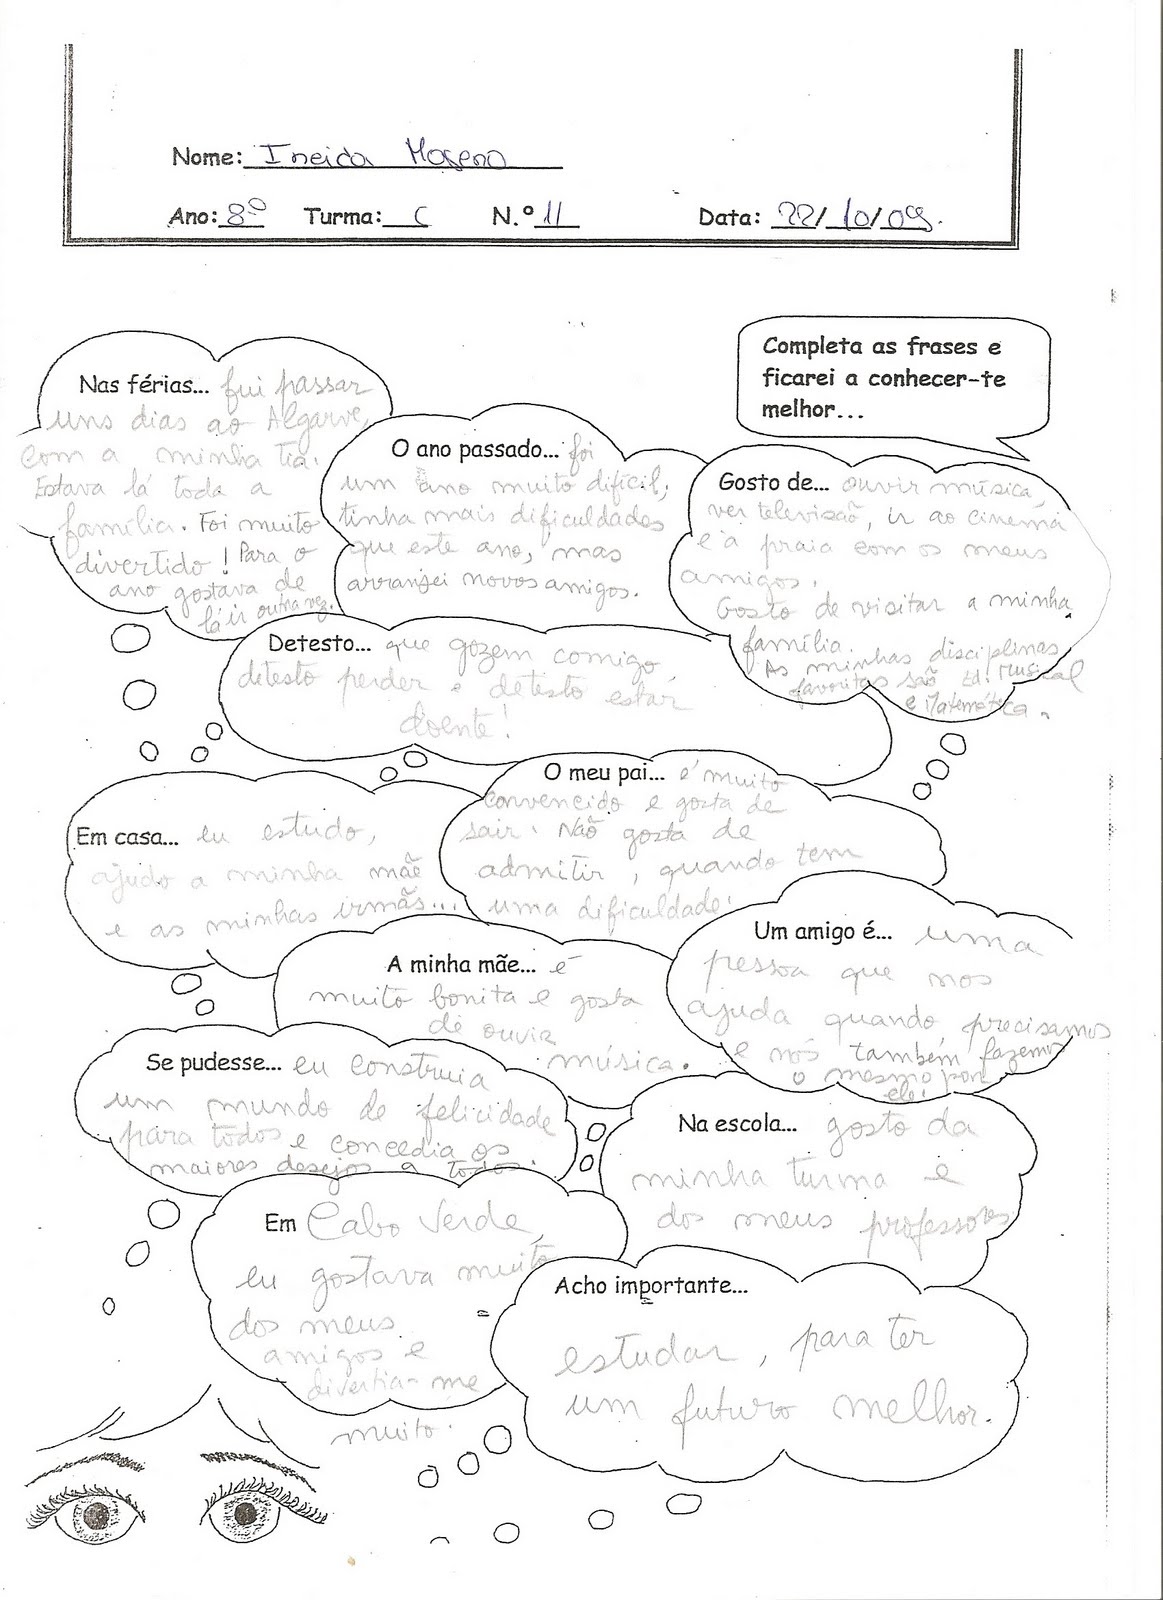 Nome: Ineida Moreno
Ano: 8º Turma: C N.º 11 Data: 22/10/09.
Completa as frases e
ficarei a conhecer-te
melhor...
Nas férias... fui passar
uns dias ao Algarve,
com a minha tia.
Estava lá toda a
família. Foi muito
divertido! Para o
ano gostava de
lá ir outra vez.
O ano passado... foi
um ano muito dificil;
tinha mais dificuldades
que este ano, mas
arranjei novos amigos.
Gosto de... ouvir música,
ver televisão, ir ao cinema
e à praia com os meus
amigos.
Gosto de visitar a minha
família.
As minhas disciplinas
favoritas são Ed. Musical
e Matemática.
Detesto... que gozem comigo
detesto perder e detesto estar
doente!
O meu pai... é muito
convencido e gosta de
sair. Não gosta de
admitir, quando tem
uma dificuldade!
Em casa... eu estudo,
ajudo a minha mãe
e as minhas irmãs...
Um amigo é... uma
pessoa que nos
ajuda quando precisamos
e nós também fazemos
o mesmo por
ele!
A minha mãe... é
muito bonita e gosta
de ouvir
música.
Se pudesse... eu construia
um mundo de felicidade
para todos e concedia os
maiores desejos a todos.
Na escola... gosto da
minha turma e
dos meus professores
Em Cabo Verde,
eu gostava muito
dos meus
amigos e
divertia-me
muito.
Acho importante...
estudar, para ter
um futuro melhor.